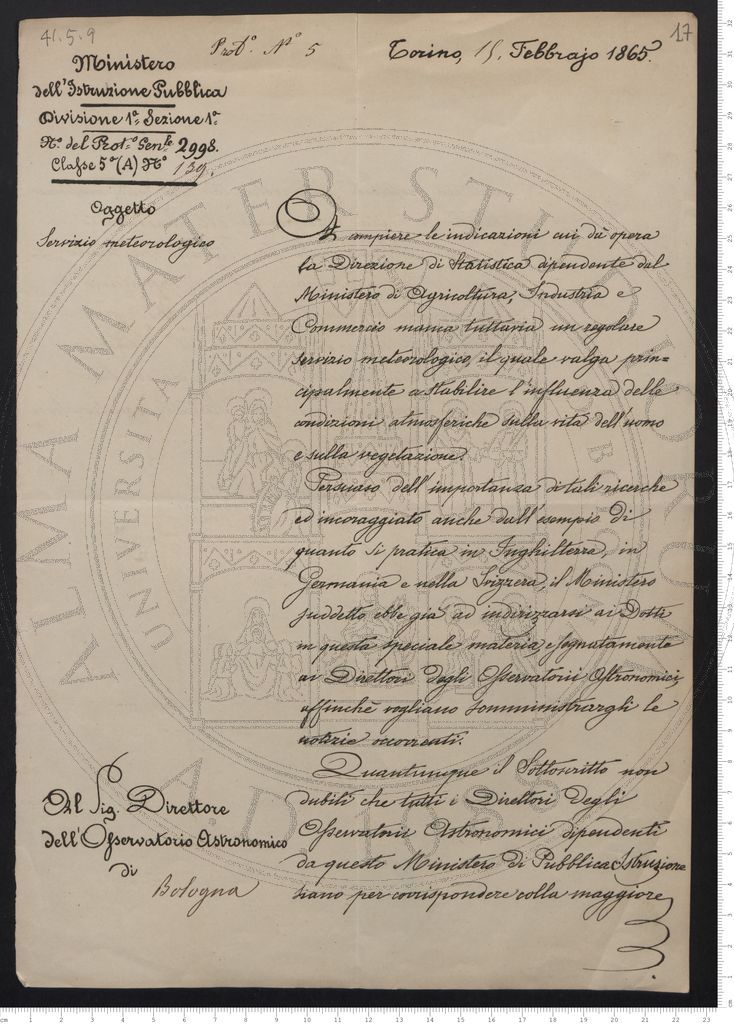 41.5.9
17
Prot.° N° 5
Torino, 15. Febbrajo 1865.
Ministero
dell'Istruzione Pubblica
Divisione 1ª Sezione 1ª
N° del Prot.° Gen.le 2998.
Classe 5ª (A) N° 139.
Oggetto
Servizio meteorologico
Ad empiere le indicazioni cui dà opera
la Direzione di Statistica dipendente dal
Ministero di Agricoltura, Industria e
Commercio manca tuttavia un regolare
servizio meteorologico, il quale valga prin=
cipalmente a stabilire l'influenza delle
condizioni atmosferiche sulla vita dell'uomo
e sulla vegetazione.
Persuaso dell'importanza di tali ricerche
ed incoraggiato anche dall'esempio di
quanto si pratica in Inghilterra, in
Germania e nella Svizzera, il Ministero
suddetto ebbe già ad indirizzarsi ai Dotti
in questa speciale materia e segnatamente
ai Direttori degli Osservatorii Astronomici,
affinchè vogliano somministrargli le
notizie occorrenti.
Quantunque il Sottoscritto non
dubiti che tutti i Direttori degli
Osservatorii Astronomici dipendenti
da questo Ministero di Pubblica Istruzione
siano per corrispondere colla maggiore
Al Sig. Direttore
dell'Osservatorio Astronomico
di
Bologna
ALMA MATER STUDIORUM
UNIVERSITA
A.D. 1088